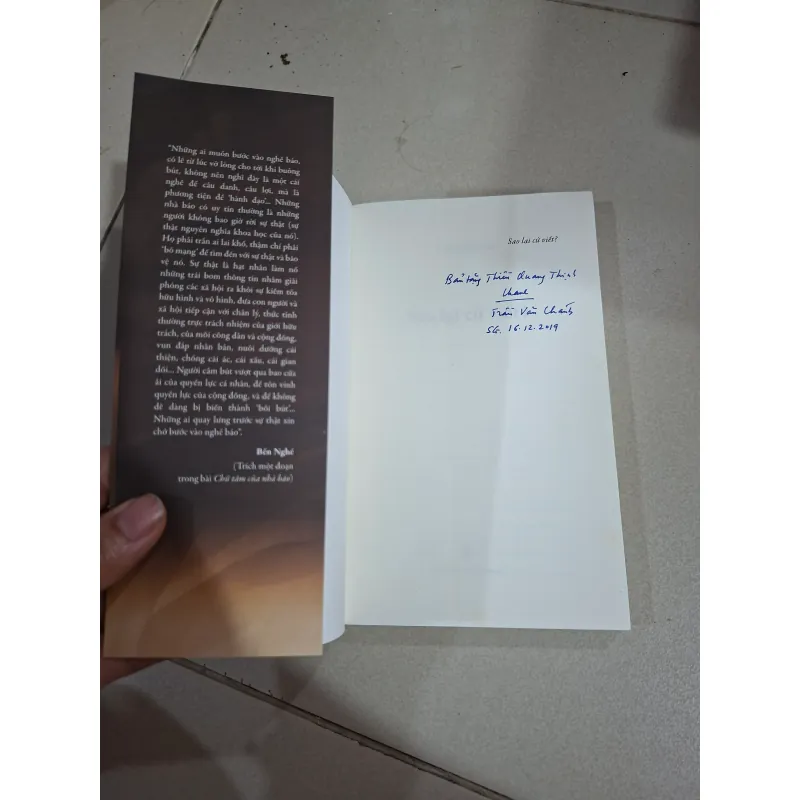 "Những ai muốn bước vào nghề báo,
có lẽ từ lúc vỡ lòng cho tới khi buông
bút, không nên nghĩ đây là một cái
nghề để cầu danh, cầu lợi, mà là
phương tiện để 'hành đạo'... Những
nhà báo có uy tín thường là những
người không bao giờ rời sự thật (sự
thật nguyên nghĩa khoa học của nó).
Họ phải trần ai lai khổ, thậm chí phải
'bỏ mạng' để tìm đến với sự thật và bảo
vệ nó. Sự thật là hạt nhân làm nổ
những trái bom thông tin nhằm giải
phóng các xã hội ra khỏi sự kiềm tỏa
hữu hình và vô hình, đưa con người và
xã hội tiếp cận với chân lý, thức tỉnh
thường trực trách nhiệm của giới hữu
trách, của mỗi công dân và cộng đồng,
vun đắp nhân bản, nuôi dưỡng cái
thiện, chống cái ác, cái xấu, cái gian
dối... Người cầm bút vượt qua bao cửa
ải của quyền lực cá nhân, để tôn vinh
quyền lực của cộng đồng, và để không
dễ dàng bị biến thành 'bồi bút'...
Những ai quay lưng trước sự thật xin
chớ bước vào nghề báo".
Bến Nghé
(Trích một đoạn
trong bài Chữ tâm của nhà báo)
Sao lại cứ viết?
Bản tặng Thiền Quang Thịnh
Trần Văn Chánh
SG. 16.12.2019